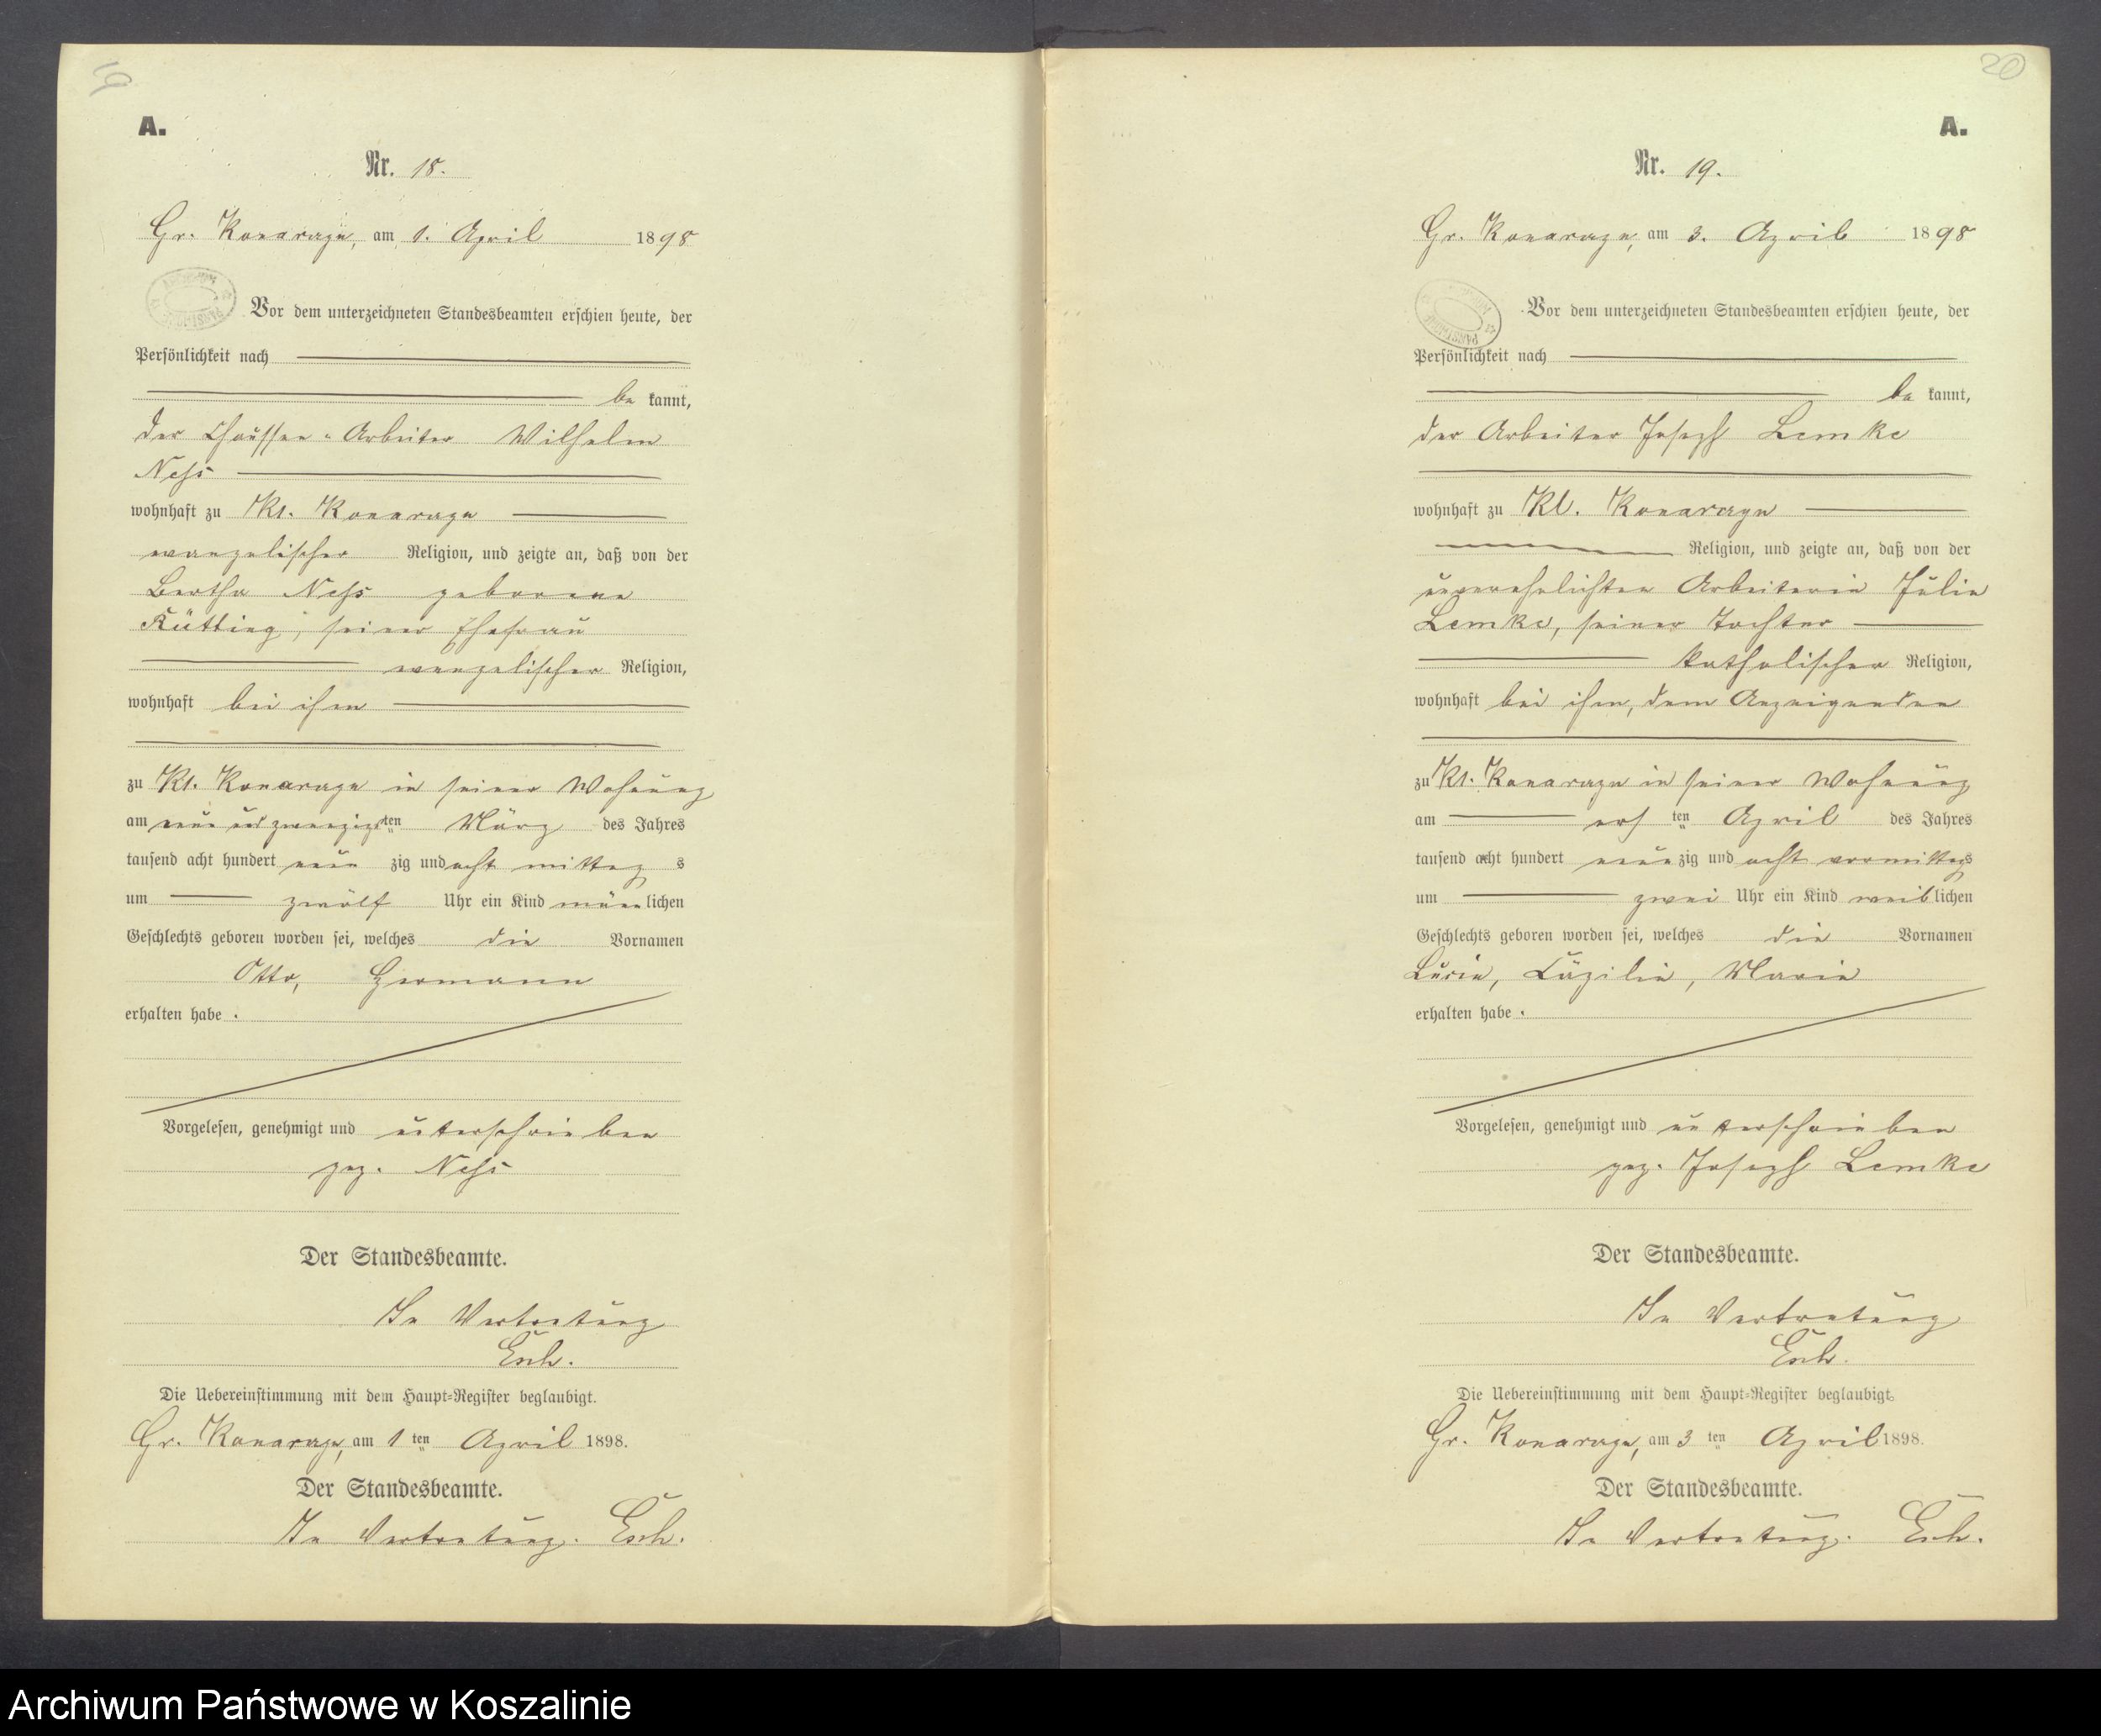 19
A.
Nr. 18.
Gr. Konarzyn, am 1. April 1898
Vor dem unterzeichneten Standesbeamten erschien heute, der
Persönlichkeit nach
be kannt,
der Chaussee-Arbeiter Wilhelm
Ness
wohnhaft zu Kl. Konarzyn
evangelischer Religion, und zeigte an, daß von der
Bertha Ness geborene
seiner Ehefrau
evangelischer Religion,
wohnhaft bei ihm
zu Kl. Konarzyn in seiner Wohnung
am neun und zwanzigsten März des Jahres
tausend acht hundert neun zig und acht mittag s
um zwölf Uhr ein Kind männ lichen
Geschlechts geboren worden sei, welches die Vornamen
Otto, Hermann
erhalten habe.
Vorgelesen, genehmigt und unterschrieben
gez. Ness
Der Standesbeamte.
In Vertretung
Die Uebereinstimmung mit dem Haupt-Register beglaubigt.
Gr. Konarzyn, am 1 ten April 1898.
Der Standesbeamte.
In Vertretung.
20
A.
Nr. 19.
Gr. Konarzyn, am 3. April 1898
Vor dem unterzeichneten Standesbeamten erschien heute, der
Persönlichkeit nach
be kannt,
der Arbeiter Joseph Lemke
wohnhaft zu Kl. Konarzyn
Religion, und zeigte an, daß von der
unverehelichten Arbeiterin Julie
Lemke, seiner Tochter
katholischer Religion,
wohnhaft bei ihm, dem Anzeigenden
zu Kl. Konarzyn in seiner Wohnung
am ers ten April des Jahres
tausend acht hundert neun zig und acht vormittags
um zwei Uhr ein Kind weib lichen
Geschlechts geboren worden sei, welches die Vornamen
Lucie, Cäzilie, Marie
erhalten habe.
Vorgelesen, genehmigt und unterschrieben
gez. Joseph Lemke
Der Standesbeamte.
In Vertretung
Die Uebereinstimmung mit dem Haupt-Register beglaubigt.
Gr. Konarzyn, am 3 ten April 1898.
Der Standesbeamte.
In Vertretung.
Archiwum Państwowe w Koszalinie